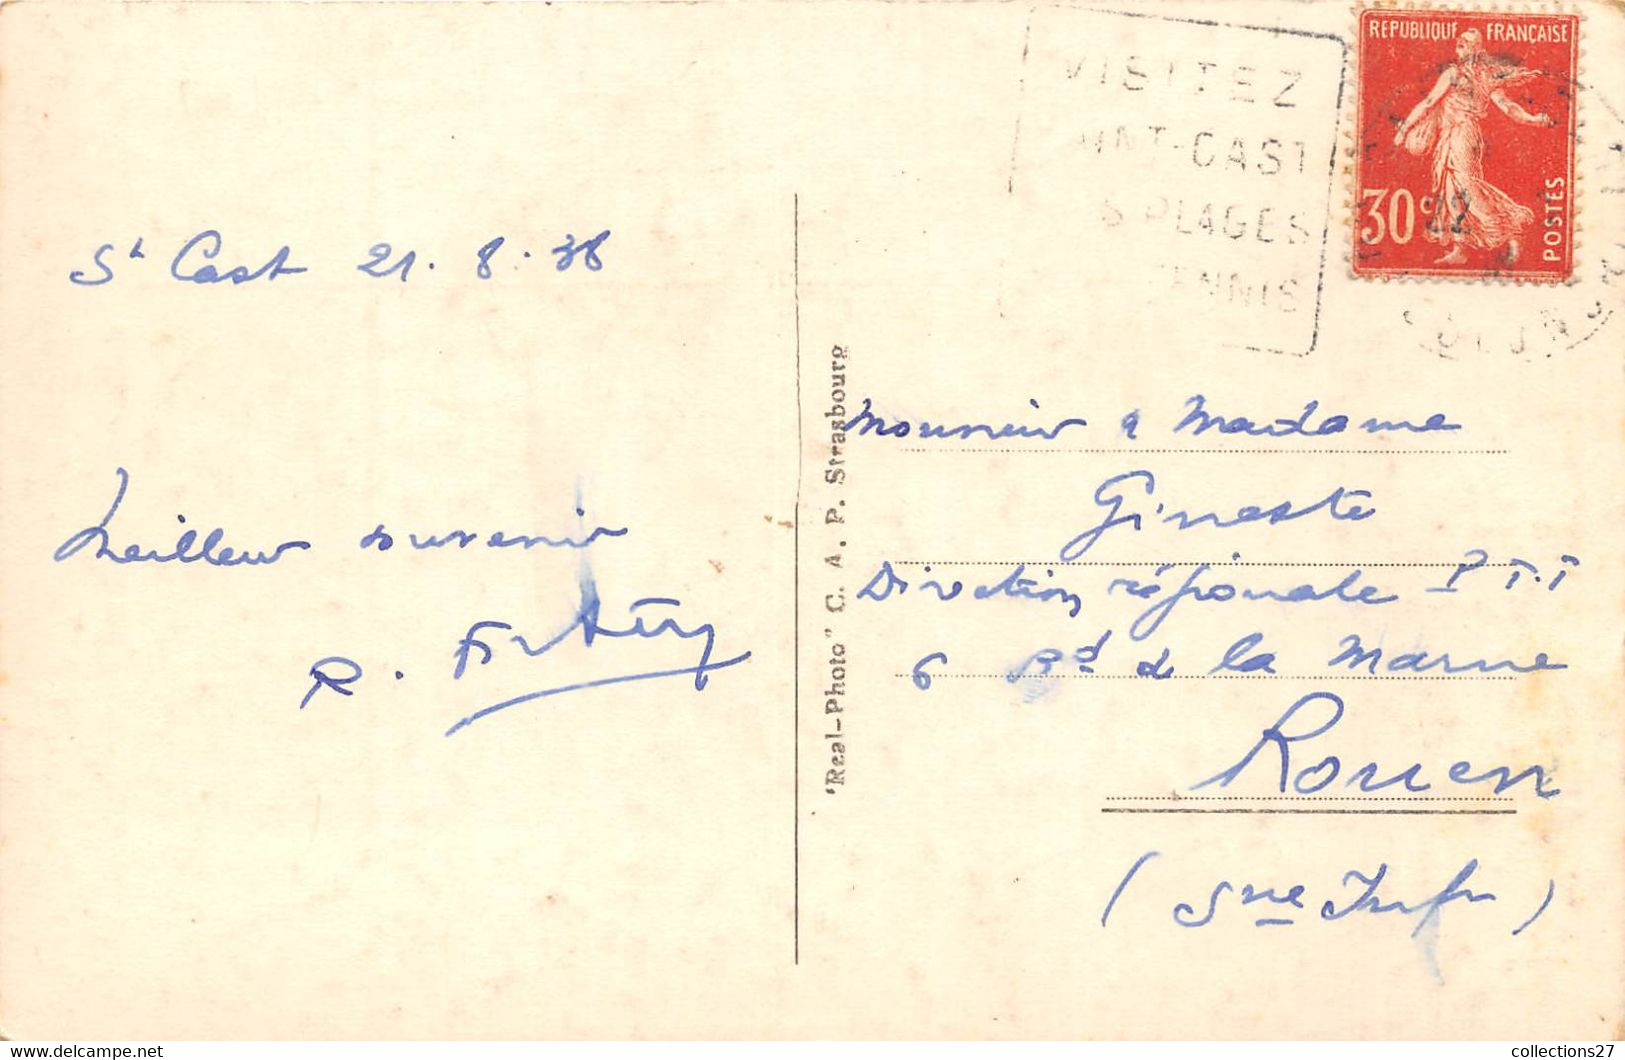 VISITEZ
-CAST
PLAGES
REPUBLIQUE FRANÇAISE
30c
POSTES
22
St Cast 21.8.38
Meilleur souvenir
R.
"Real-Photo" C. A. P. Strasbourg
Monsieur & Madame
Gineste
Direction régionale P.T.T
6 Bd de la Marne
Rouen
(Sne Infre)
www.delcampe.net
collections27